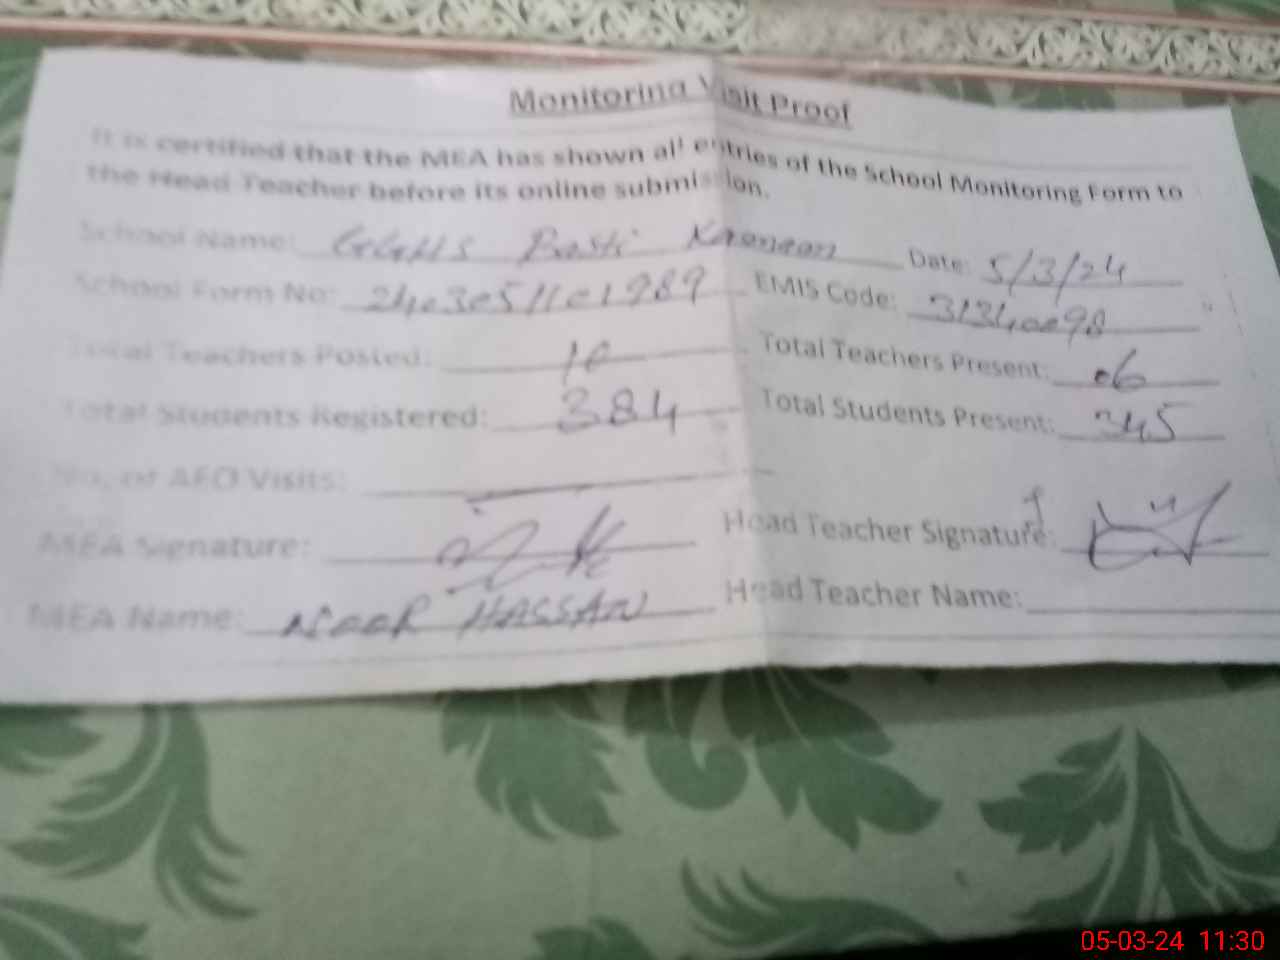 Monitoring Visit Proof
It is certified that the MEA has shown all entries of the School Monitoring Form to
the Head Teacher before its online submission.
School Name: GGHS Basti Date: 5/3/24
School Form No: 2403051101989 EMIS Code: 31340098
Total Teachers Posted: 10 Total Teachers Present: 06
Total Students Registered: 384 Total Students Present: 345
No. of AEO Visits:
MEA Signature: Head Teacher Signature:
MEA Name: HASSAN Head Teacher Name:
05-03-24 11:30